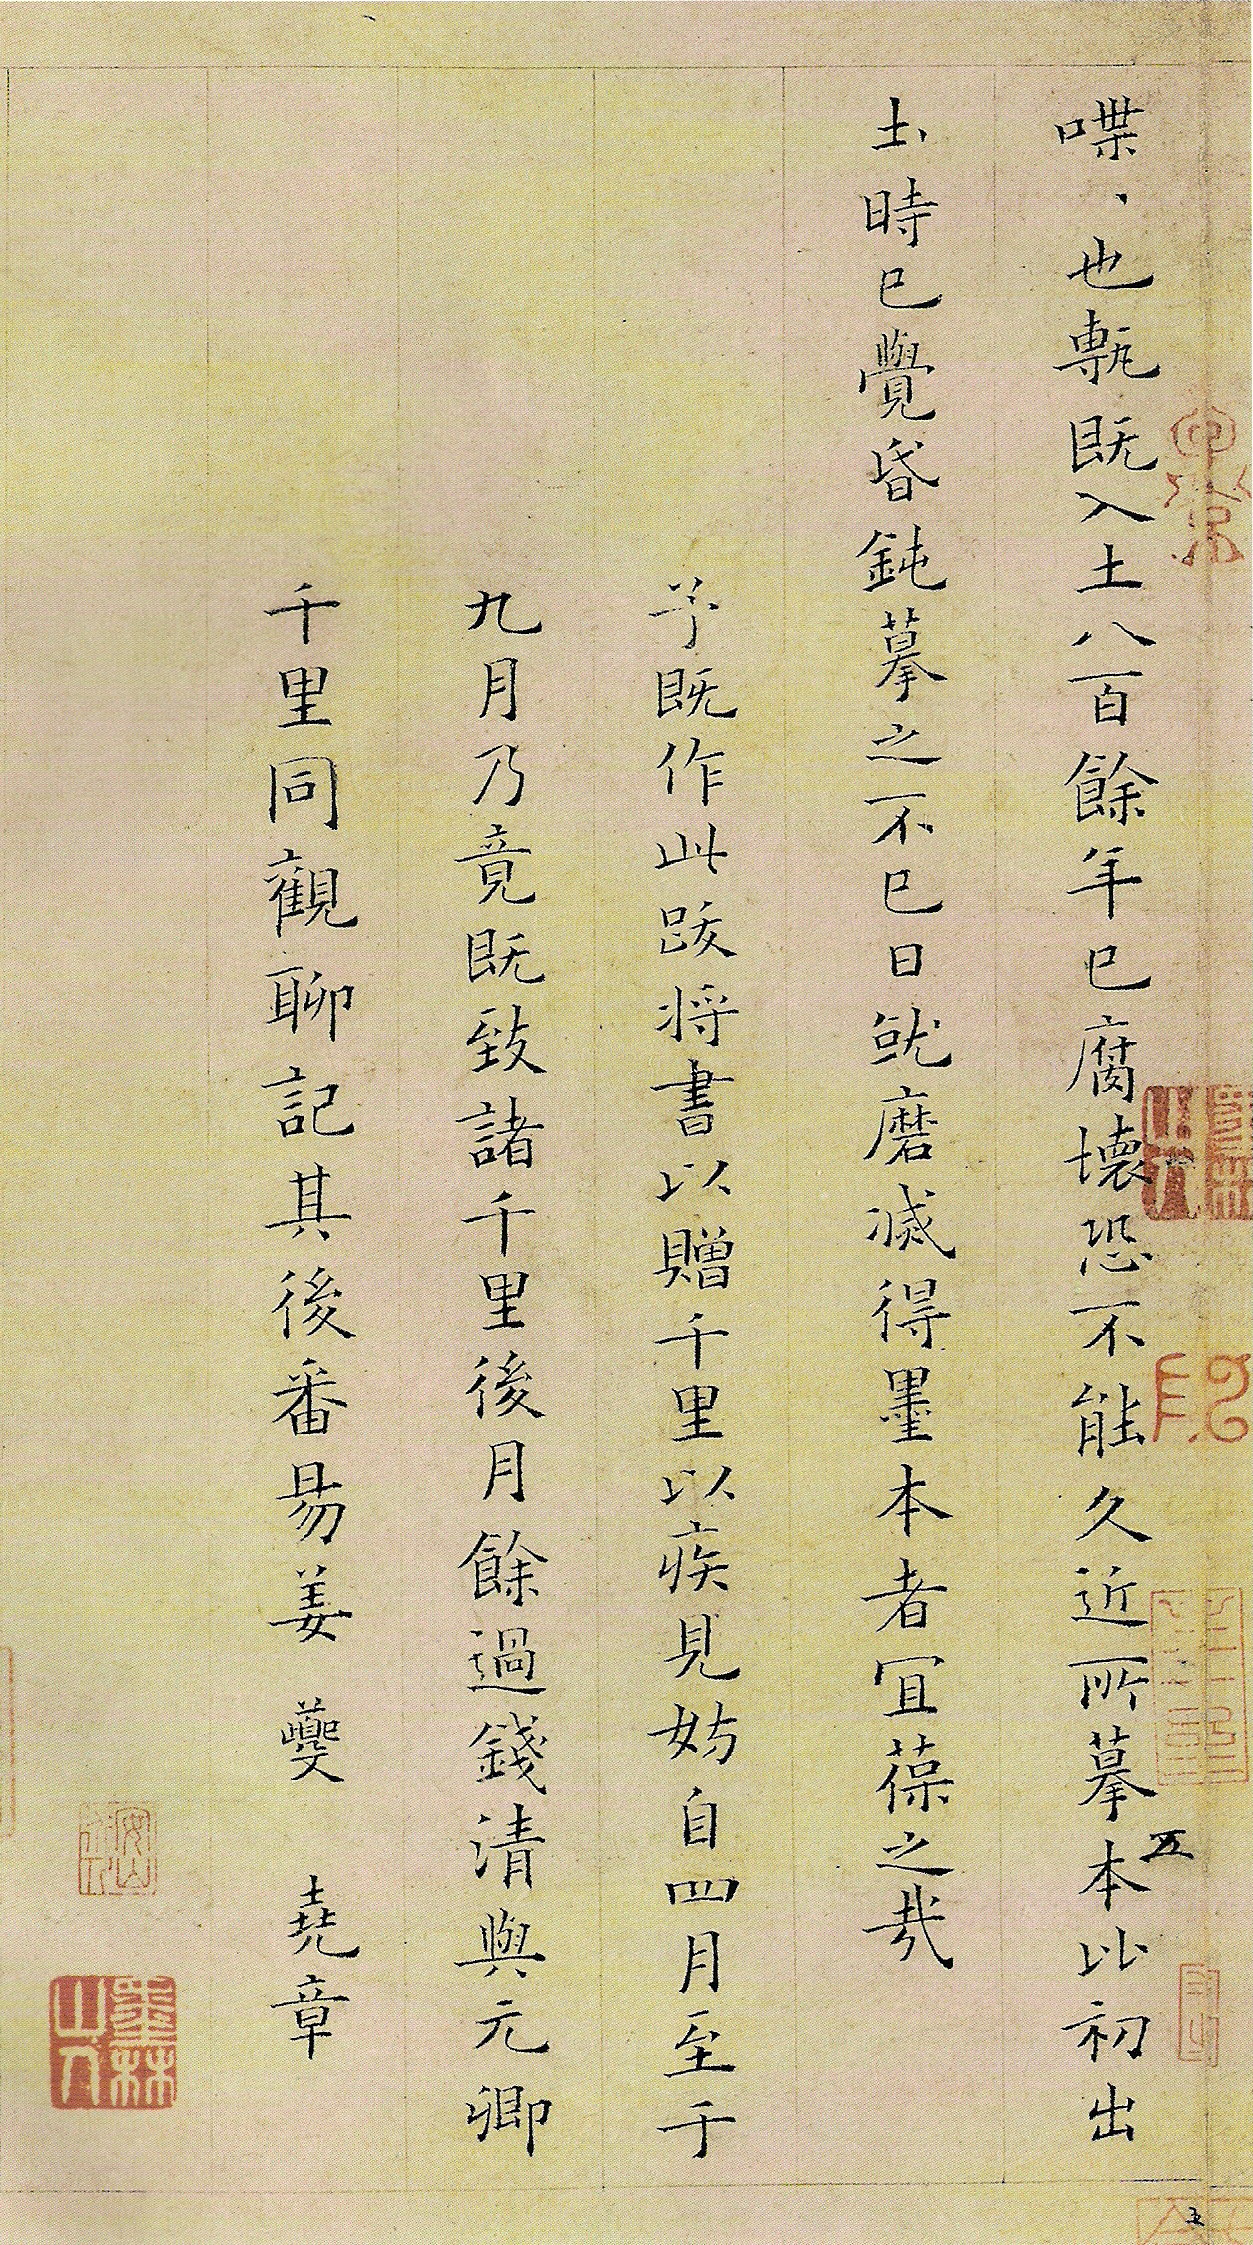 喋、也甎既入土八百餘年已腐壞恐不能久近所摹本比初出
五
土時已覺昏鈍摹之不已日就磨滅得墨本者宜葆之哉
予既作此跋将書以贈千里以疾見妨自四月至于
九月乃竟既致諸千里後月餘過錢清與元卿
千里同觀聊記其後番昜姜 夔 堯章
墨林山人